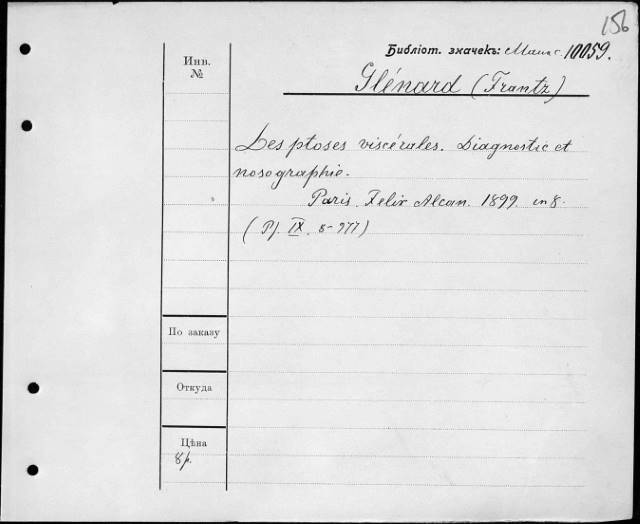 156
Библіот. значекъ: Манс. 10059.
Инв.
№
Glénard (Frantz)
Des ptoses viscérales. Diagnostic et
nosographie.
Paris. Felix Alcan. 1899 in 8.
(Pf. IX. 8-977)
По заказу
Откуда
Цѣна
8р.